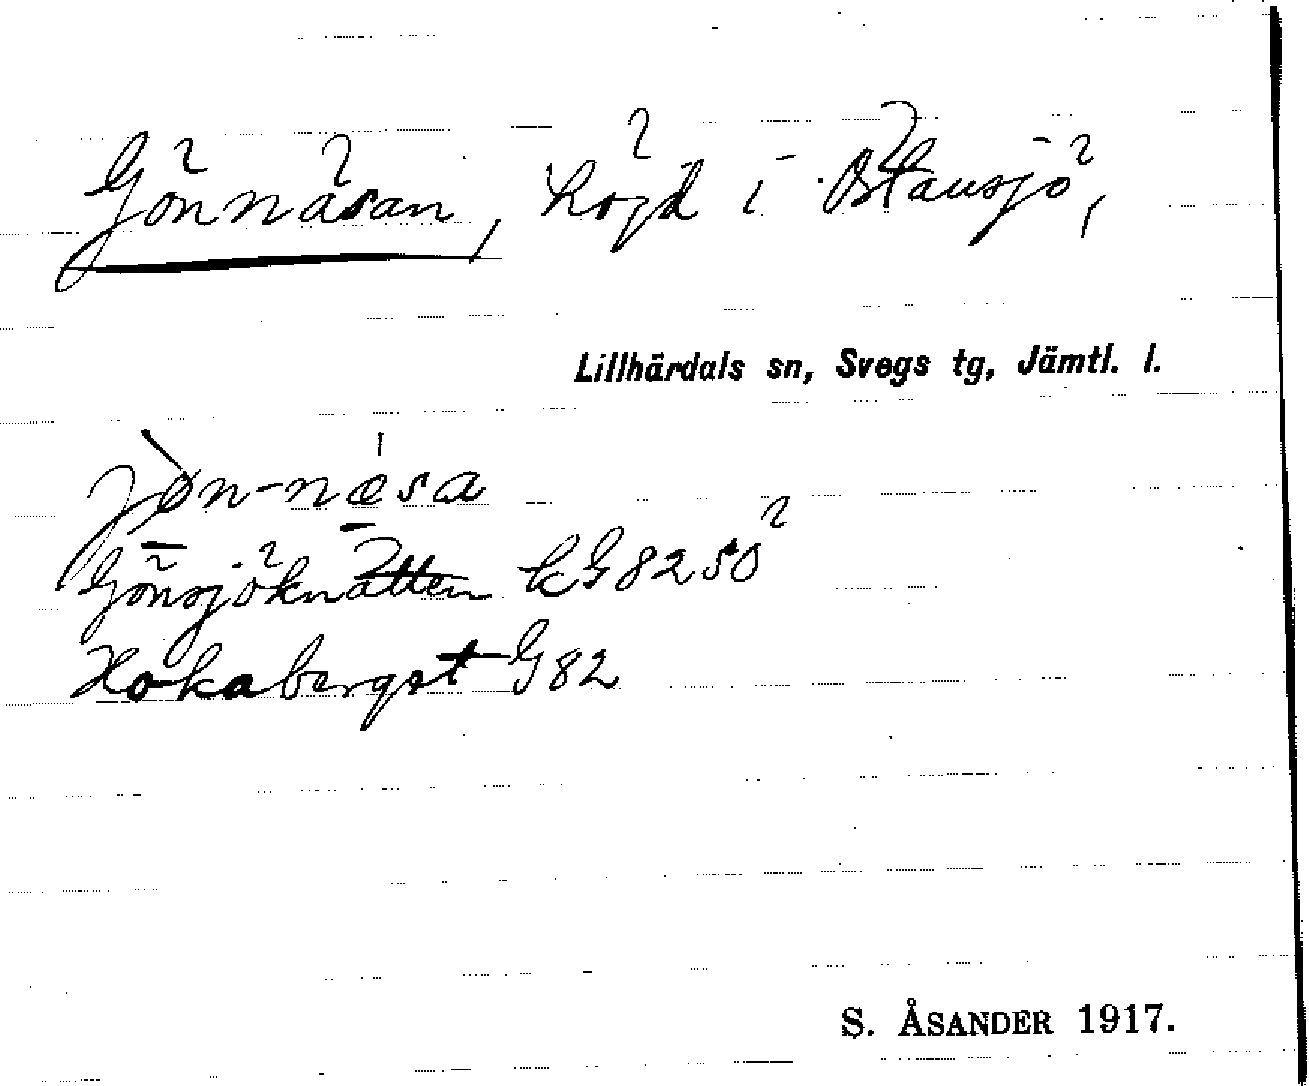 Gönnäsan, höjd i Blåusjö,
Lillhärdals sn, Svegs tg, Jämtl. l.
jøn-næsa
Gönsjöknätten kG 82 50
Hökabergst G 82
S. ÅSANDER 1917.